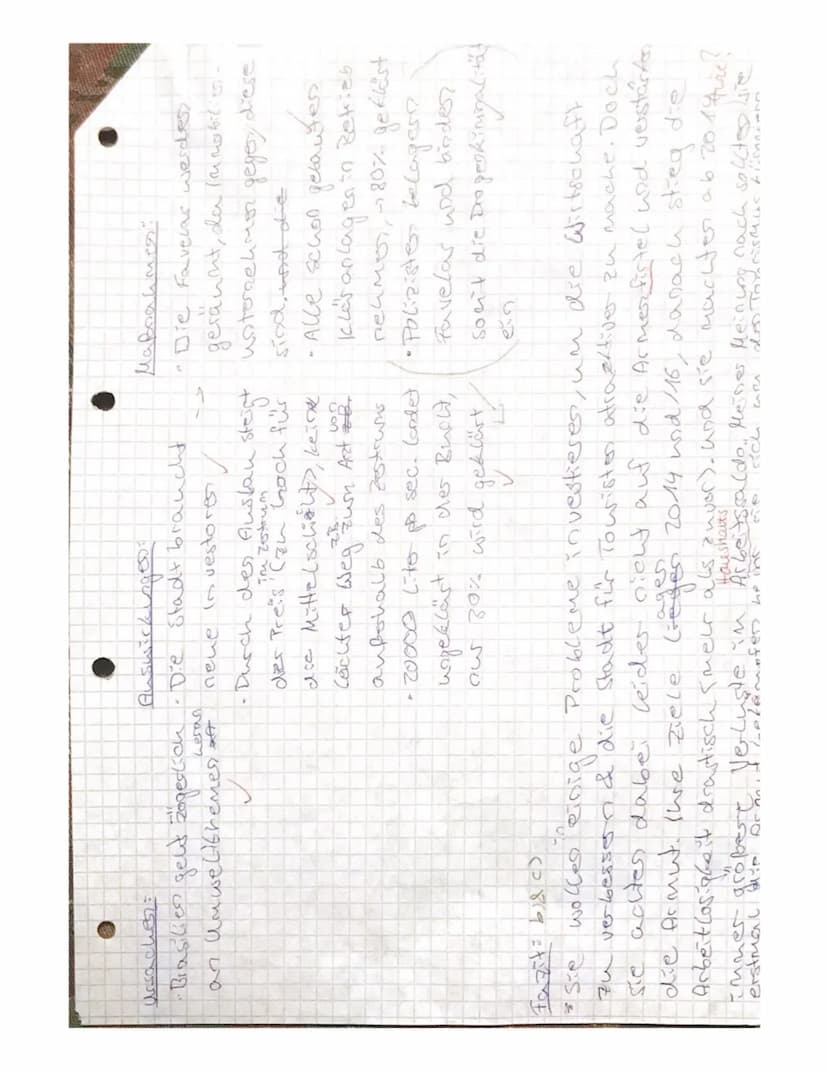 Ursachen:
· Brasilien geht zögerlich
an Umweltthemen heran
Auswirkungen:
· Die Stadt braucht
neue Investoren ->
· Durch den Ausbau steigt
der Preis im Zentrum (zu hoch für
die Mittelschicht), keine
leichter Weg zur Arbeit von
außerhalb des Zentrums
· 20000 Liter pro sec. landet
ungeklärt in der Bucht,
nur 30% wird geklärt
Maßnahmen:
· Die Favelas werden
geräumt, da Immobilien-
unternehmer gegen diese
sind. und die
· Alle schon gebauten
Kläranlagen in Betrieb
nehmen, -> 80% geklärt
· Polizisten belagern
Favelas und
somit die Drogenkriminalität
ein
Fazit: b) & c)
· Sie wollen in einige Probleme investieren, um die Wirtschaft
zu verbessern & die Stadt für Touristen attraktiver zu mache. Doch
sie achten dabei leider nicht auf die Armenfirtel und verstärken
die Armut. Ihre Ziele liegen 2014 und /16, danach stieg die
Arbeitlosigkeit drastisch (mehr als zuvor). und sie machten ab 2014
immer größere Verluste im Haushalts Meiner Meinung nach sollten sie
erstmal die Armut bekämpfen bevor sie sich um den Tourismus kümmern